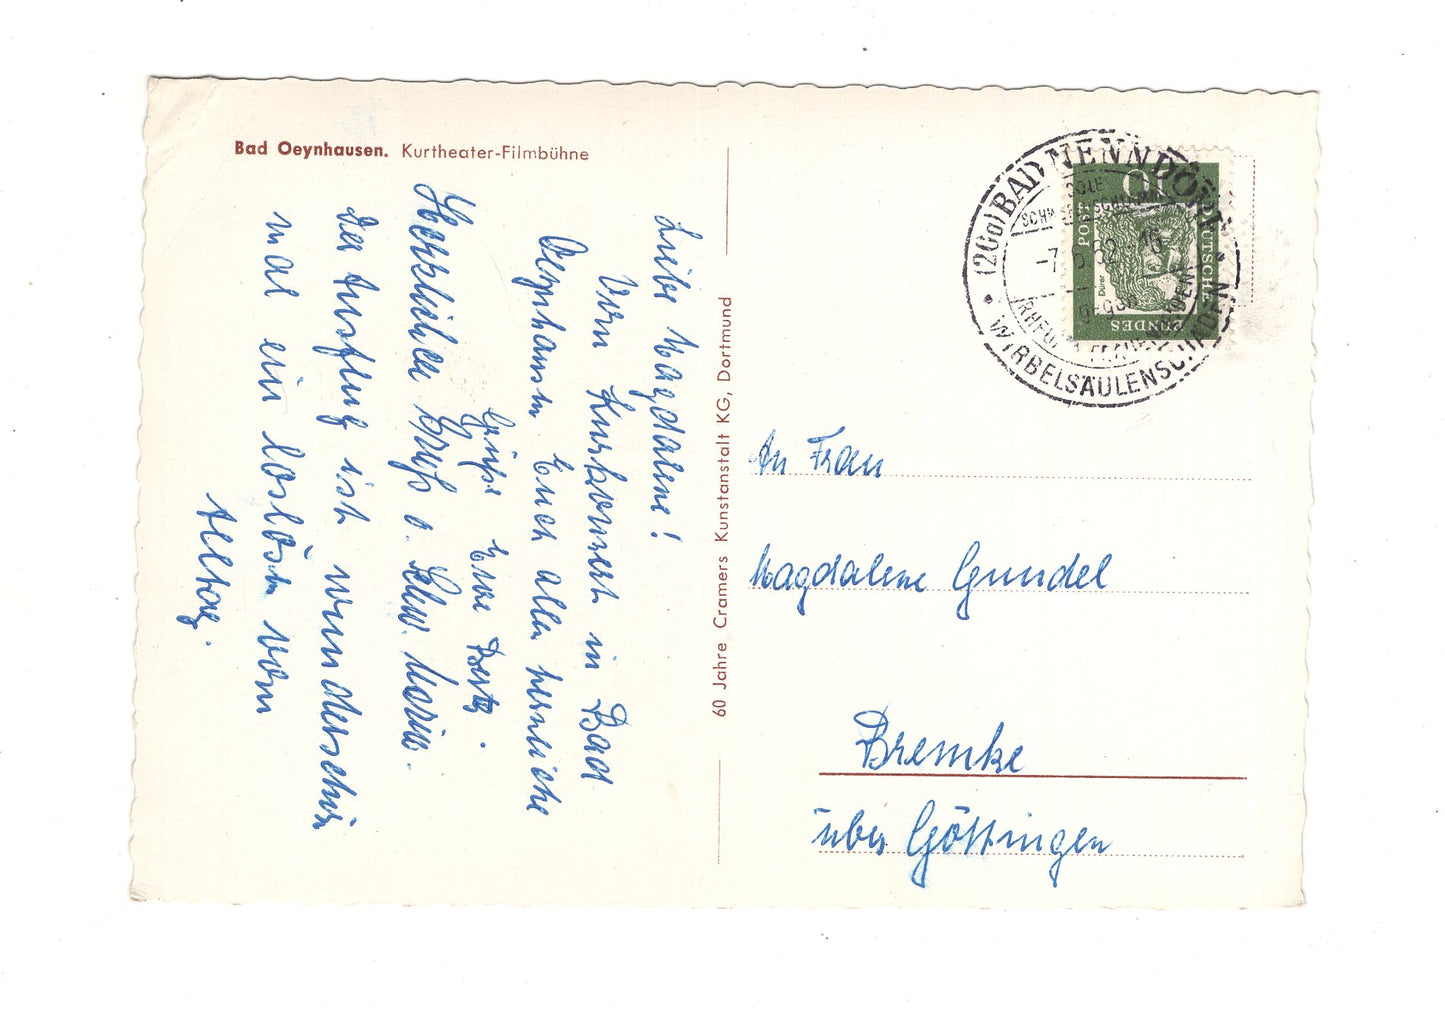 Bad Oeynhausen. Kurtheater-Filmbühne
Liebe Magdalene!
Vom Kurkonzert in Bad
Oeynhausen Euch allen herzliche
Grüße Eure Berta.
Herzlichen Gruß v. Schw. Maria.
Der Ausflug ist wunderschön
mal ein loslösen vom
Alltag.
60 Jahre Cramers Kunstanstalt KG, Dortmund
(20a) BAD NENNDORF
SOLE
-7.6.62-16
RHEUMA FRAUENLEIDEN
WIRBELSÄULENSCHÄDEN
DEUTSCHE
BUNDES
POST
10
Dürer
An Frau
Magdalene Gundel
Bremke
über Göttingen